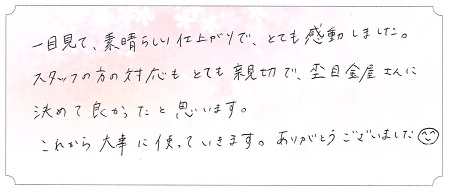 一目見て、素晴らしい仕上がりで、とても感動しました。
スタッフの方の対応もとても親切で、杢目金屋さんに
決めて良かったと思います。
これから大事に使っていきます。ありがとうございました